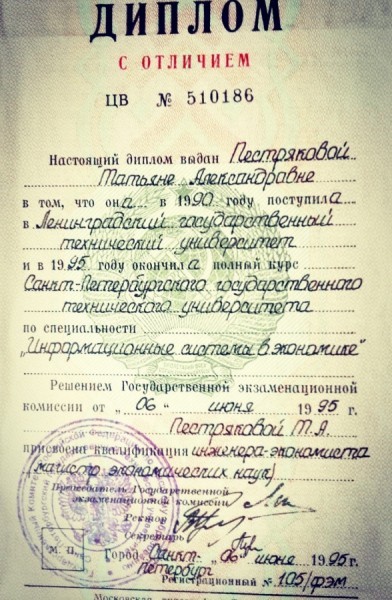 ДИПЛОМ
С ОТЛИЧИЕМ
ЦВ № 510186
Настоящий диплом выдан Пестряковой
Татьяне Александравне
в том, что она в 1990 году поступила
в Ленинградский государственный
технический университет
и в 1995 году окончила полный курс
Санкт-Петербургского государственного
технического университета
по специальности
„Информационные системы в экономике"
Решением Государственной экзаменационной
комиссии от „06" июня 1995 г.
Пестряковой Т.А.
присвоена квалификация инженера-экономиста
(магистр экономических наук)
Председатель Государственной
экзаменационной комиссии
Ректор
Секретарь
М. П.
Город Санкт- „06" июня 1995 г.
Петербург
Регистрационный № 105/фэм
Московская